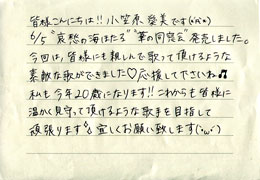 皆様こんにちは!! 小笠原愛美です(*^^*)
6/5 "哀愁の海ほたる" "華の同窓会" 発売しました。
今回は、皆様にも親しんで歌って頂けるような
素敵な歌ができました♡応援して下さいね♫
私も今年20歳になります!! これからも皆様に
温かく見守って頂けるような歌手を目指して
頑張ります♪宜しくお願い致します(^ω^)